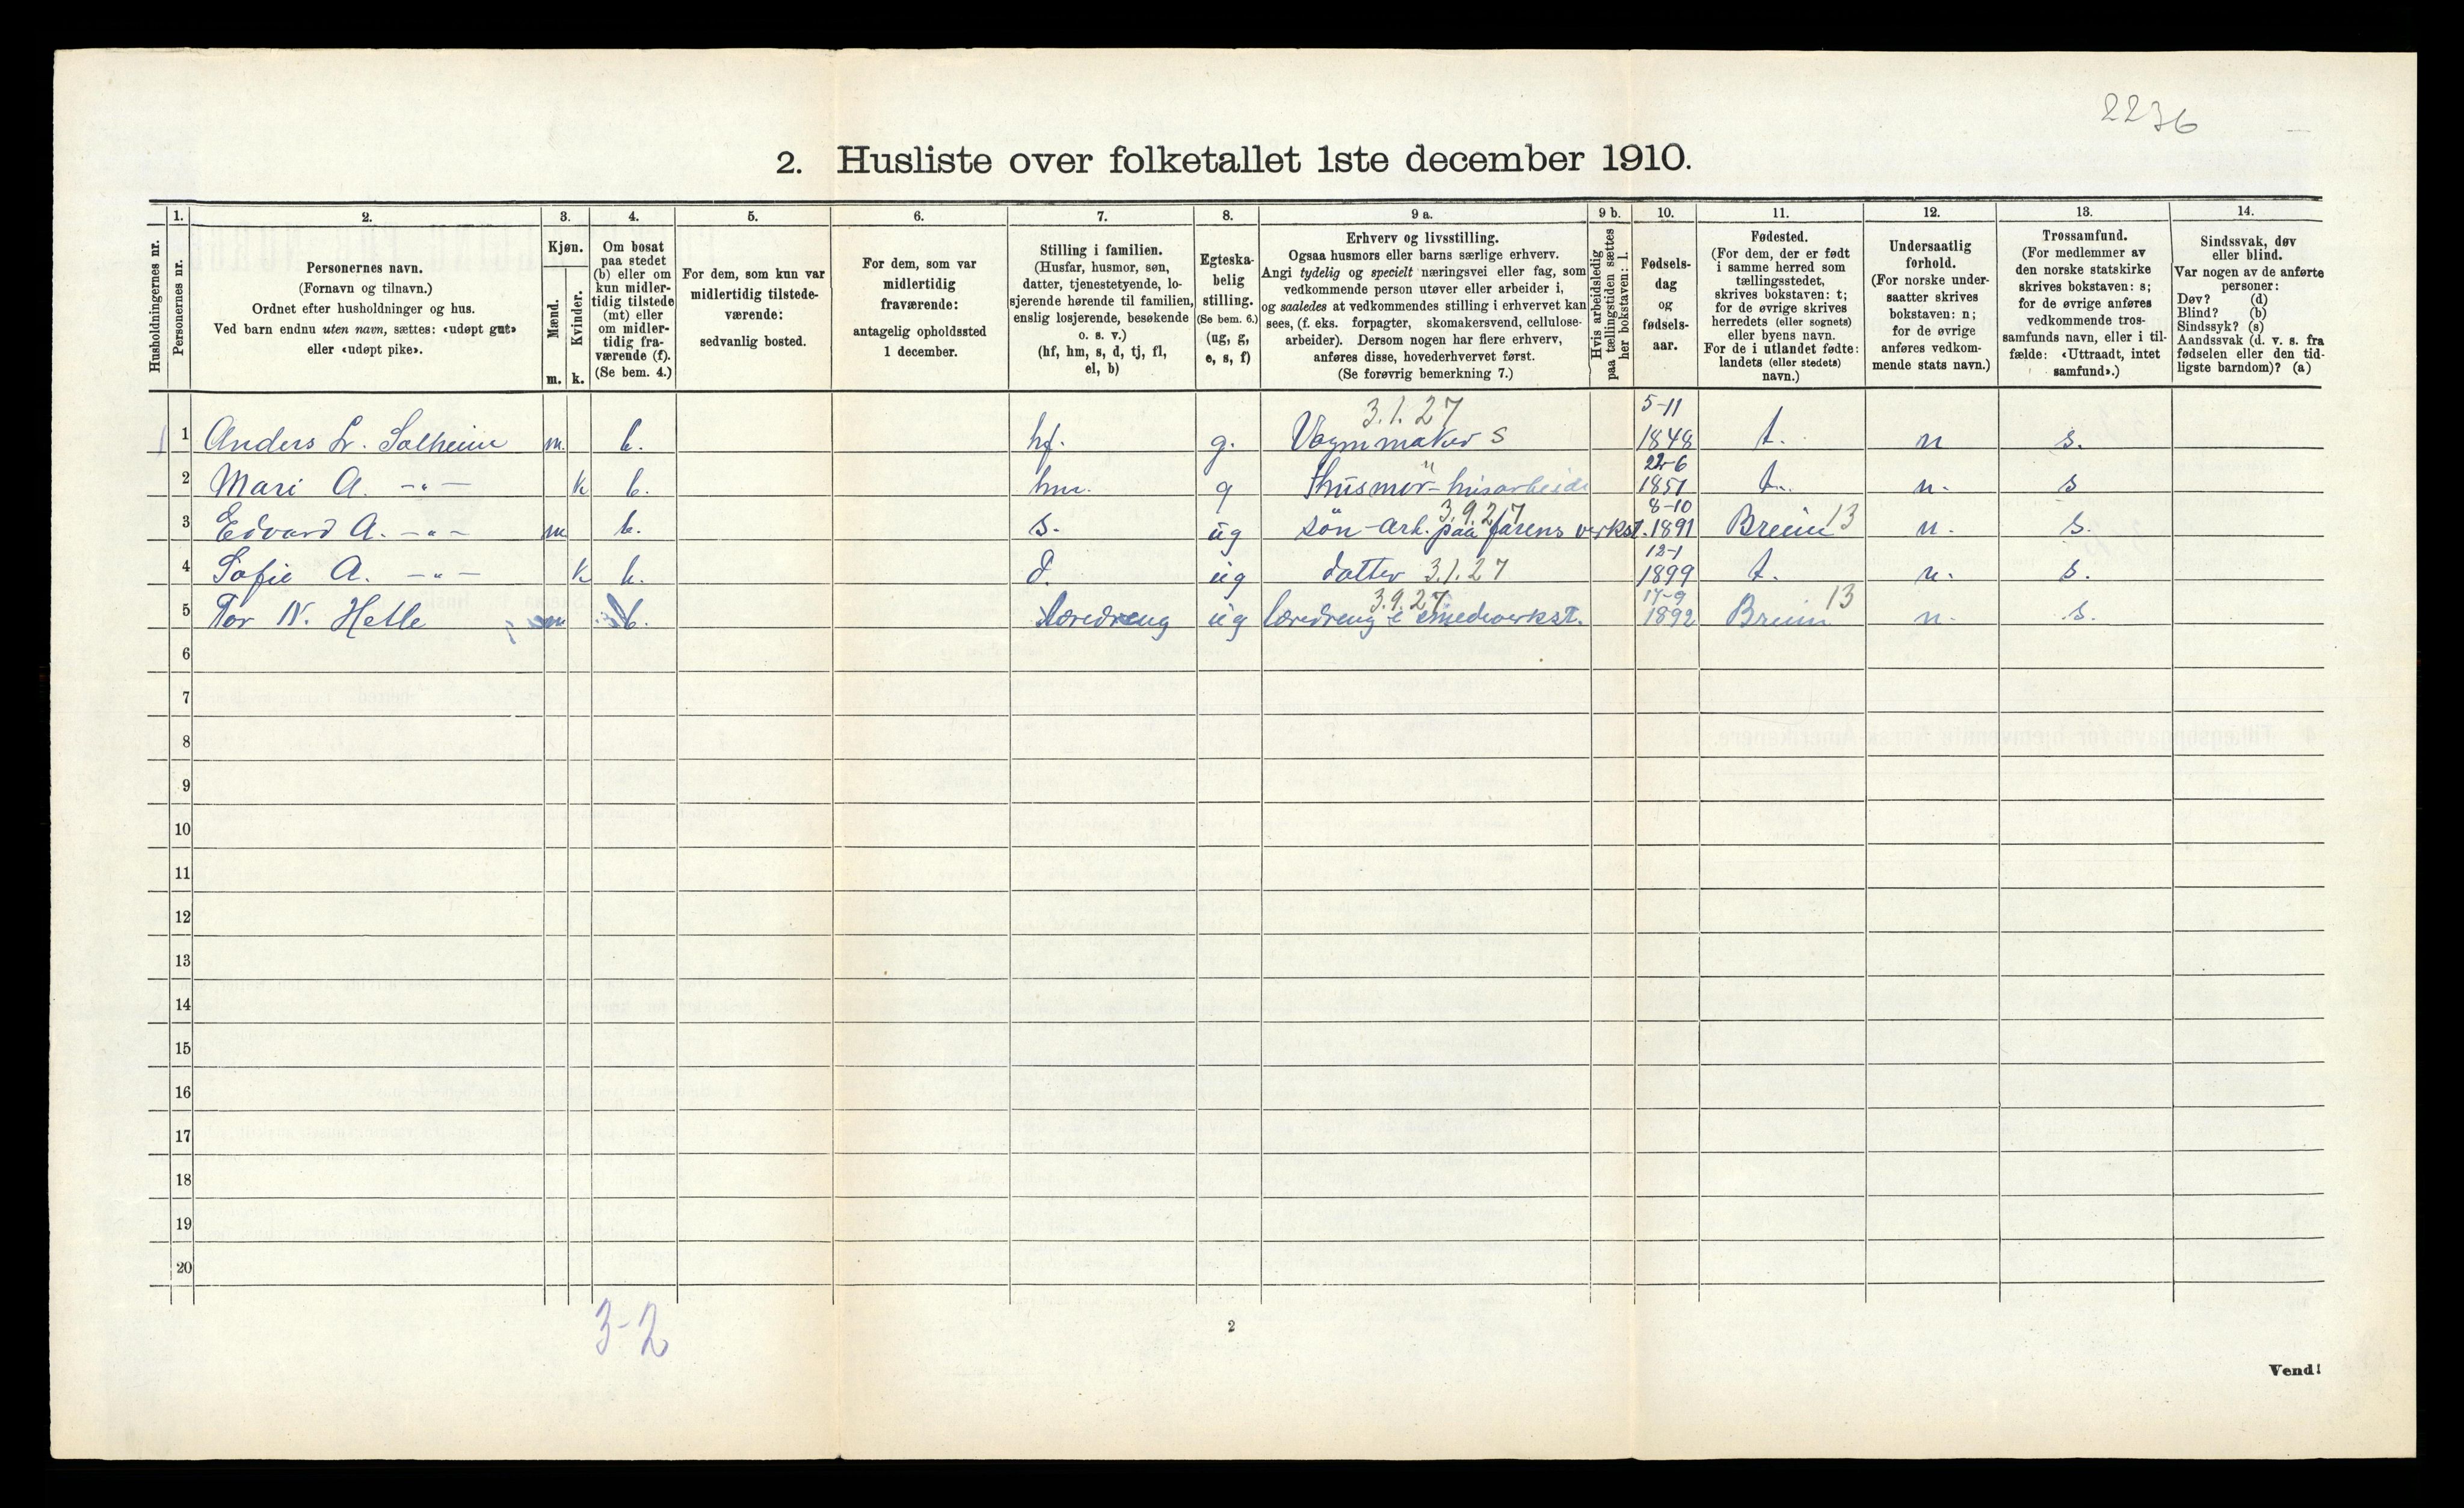 2236
2. Husliste over folketallet 1ste december 1910.
Husholdningernes nr.
1.
Personernes nr.
2.
Personernes navn.
(Fornavn og tilnavn.)
Ordnet efter husholdninger og hus.
Ved barn endnu uten navn, sættes: «udøpt gut»
eller «udøpt pike».
3.
Kjøn.
Mænd.
m.
Kvinder.
k.
4.
Om bosat
paa stedet
(b) eller om
kun midler-
tidig tilstede
(mt) eller
om midler-
tidig fra-
værende (f).
(Se bem. 4.)
5.
For dem, som kun var
midlertidig tilstede-
værende:
sedvanlig bosted.
6.
For dem, som var
midlertidig
fraværende:
antagelig opholdssted
1 december.
7.
Stilling i familien.
(Husfar, husmor, søn,
datter, tjenestetyende, lo-
sjerende hørende til familien,
enslig losjerende, besøkende
o. s. v.)
(hf, hm, s, d, tj, fl,
el, b)
8.
Egteska-
belig
stilling.
(Se bem. 6.)
(ug, g,
e, s, f)
9 a.
Erhverv og livsstilling.
Ogsaa husmors eller barns særlige erhverv.
Angi tydelig og specielt næringsvei eller fag, som
vedkommende person utøver eller arbeider i,
og saaledes at vedkommendes stilling i erhvervet kan
sees, (f. eks. forpagter, skomakersvend, cellulose-
arbeider). Dersom nogen har flere erhverv,
anføres disse, hovederhvervet først.
(Se forøvrig bemerkning 7.)
9 b.
Hvis arbeidsledig
paa tællingstiden sættes
her bokstaven: l.
10.
Fødsels-
dag
og
fødsels-
aar.
11.
Fødested.
(For dem, der er født
i samme herred som
tællingsstedet,
skrives bokstaven: t;
for de øvrige skrives
herredets (eller sognets)
eller byens navn.
For de i utlandet fødte:
landets (eller stedets)
navn.)
12.
Undersaatlig
forhold.
(For norske under-
saatter skrives
bokstaven: n;
for de øvrige
anføres vedkom-
mende stats navn.)
13.
Trossamfund.
(For medlemmer av
den norske statskirke
skrives bokstaven: s;
for de øvrige anføres
vedkommende tros-
samfunds navn, eller i til-
fælde: «Uttraadt, intet
samfund».)
14.
Sindssvak, døv
eller blind.
Var nogen av de anførte
personer:
Døv? (d)
Blind? (b)
Sindssyk? (s)
Aandssvak (d. v. s. fra
fødselen eller den tid-
ligste barndom)? (a)
3.1.27 5-11
1 1 Anders L. Solheim m. b. hf. g. Vognmaker s 1848 t. n s.
22-6
2 Mari A. -"- k b. hm. g Husmor - husarbeide 1851 t. n. s
3.9.27 8-10
3 Edvard A. -"- m b. s. ug søn - arb. paa farens verkst. 1891 Breim 13 n. s.
12-1
4 Sofie A. -"- k b. d. ug datter 3.1.27 1899 t. n. s.
3.9.27 17-9
5 Tor N. Hetle m b. læredreng ug læredreng i smedverkst. 1892 Breim 13 n. s.
6
7
8
9
10
11
12
13
14
15
16
17
18
19
20
3-2
2
Vend!